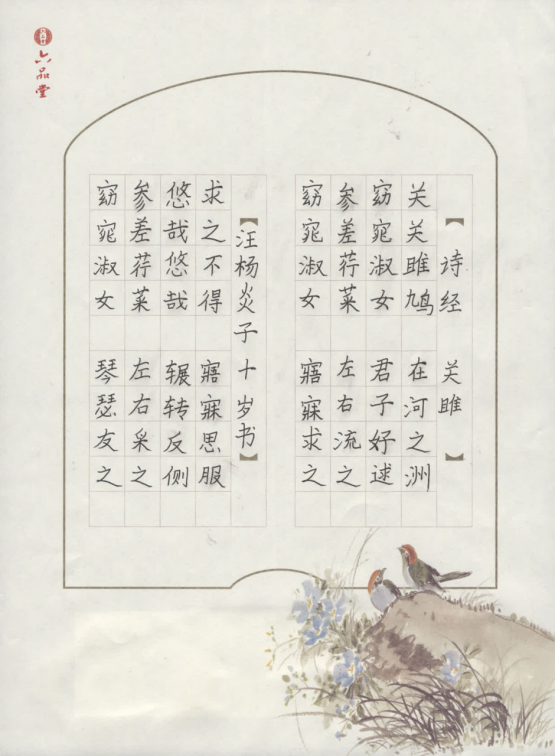 六品堂
【诗经 关雎】
关关雎鸠 在河之洲
窈窕淑女 君子好逑
参差荇菜 左右流之
窈窕淑女 寤寐求之
【汪杨炎子 十岁书】
求之不得 寤寐思服
悠哉悠哉 辗转反侧
参差荇菜 左右采之
窈窕淑女 琴瑟友之